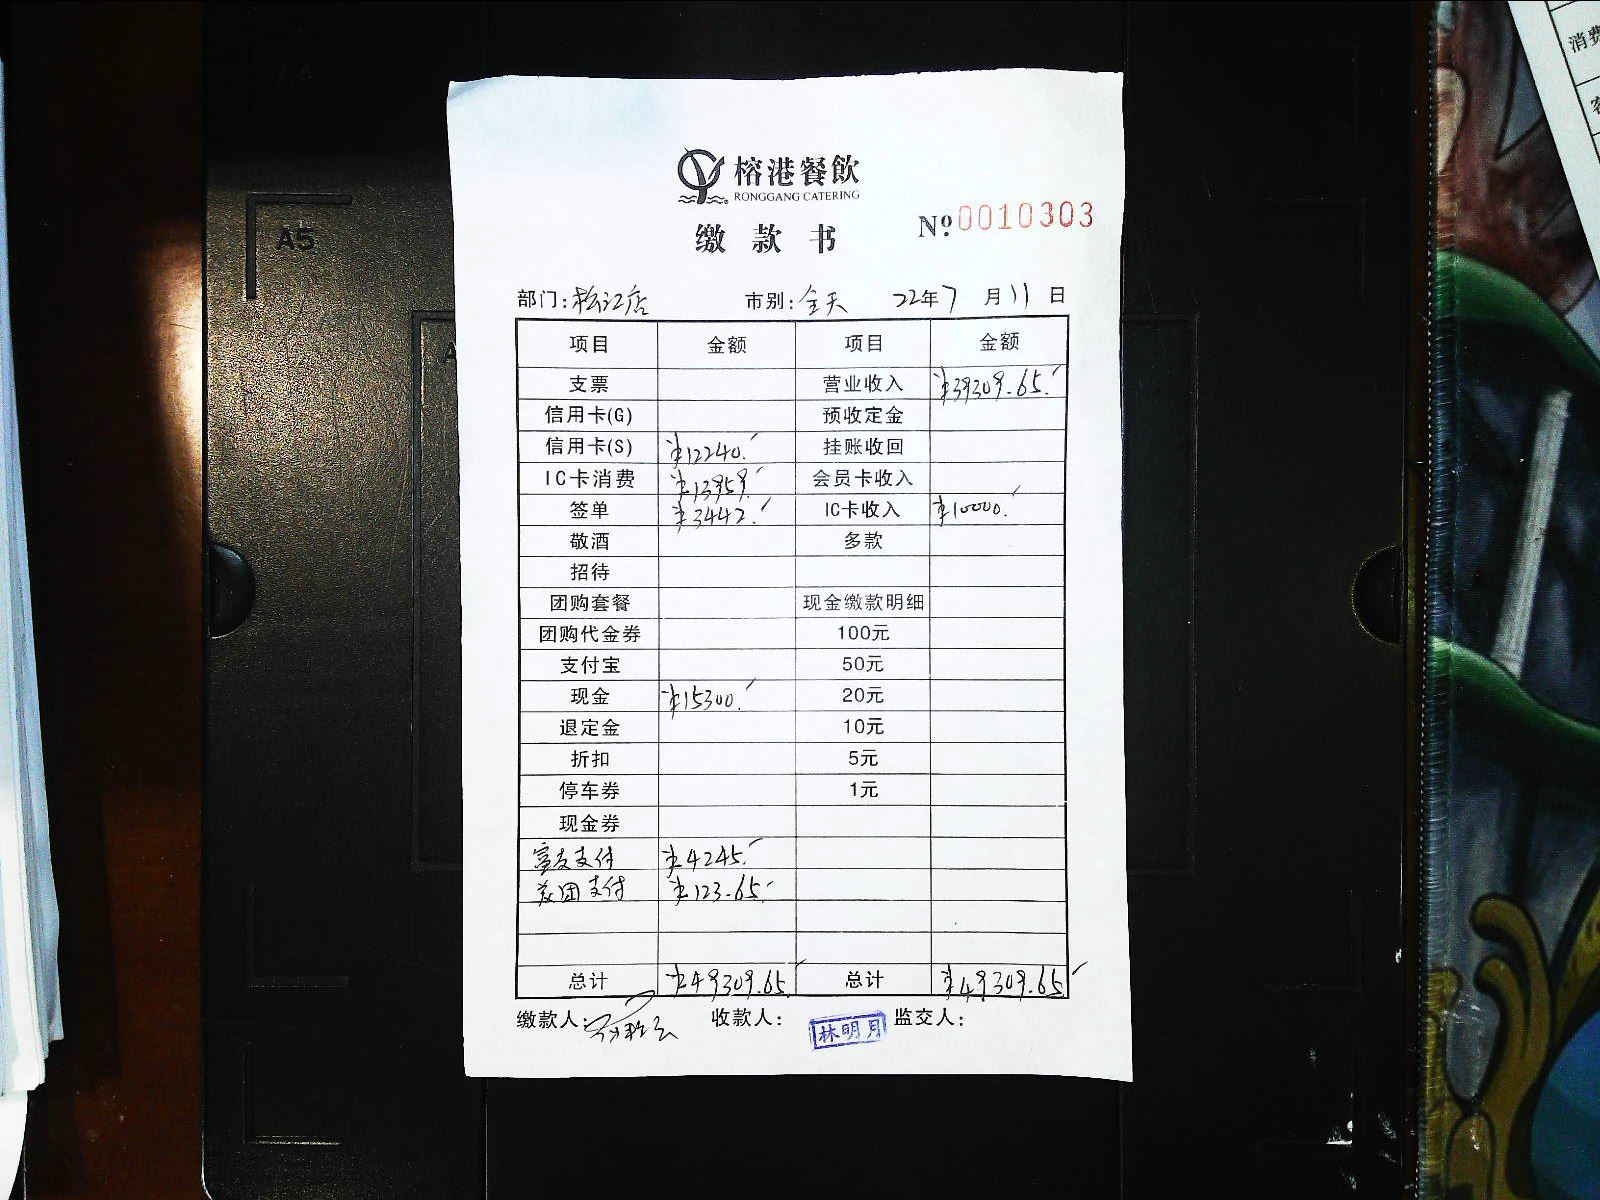 榕港餐飲
RONGGANG CATERING
缴款书
№0010303
部门:松江店 市别:全天 22年7月11日
项目 金额 项目 金额
支票 营业收入 ¥39309.65
信用卡(G) 预收定金
信用卡(S) ¥12240. 挂账收回
IC卡消费 ¥13959. 会员卡收入
签单 ¥3442. IC卡收入 ¥10000.
敬酒 多款
招待
团购套餐 现金缴款明细
团购代金券 100元
支付宝 50元
现金 ¥15300. 20元
退定金 10元
折扣 5元
停车券 1元
现金券
富友支付 ¥4245.
美团支付 ¥123.65
总计 ¥49309.65 总计 ¥49309.65
缴款人: 收款人: 林明月 监交人:
A5
消费